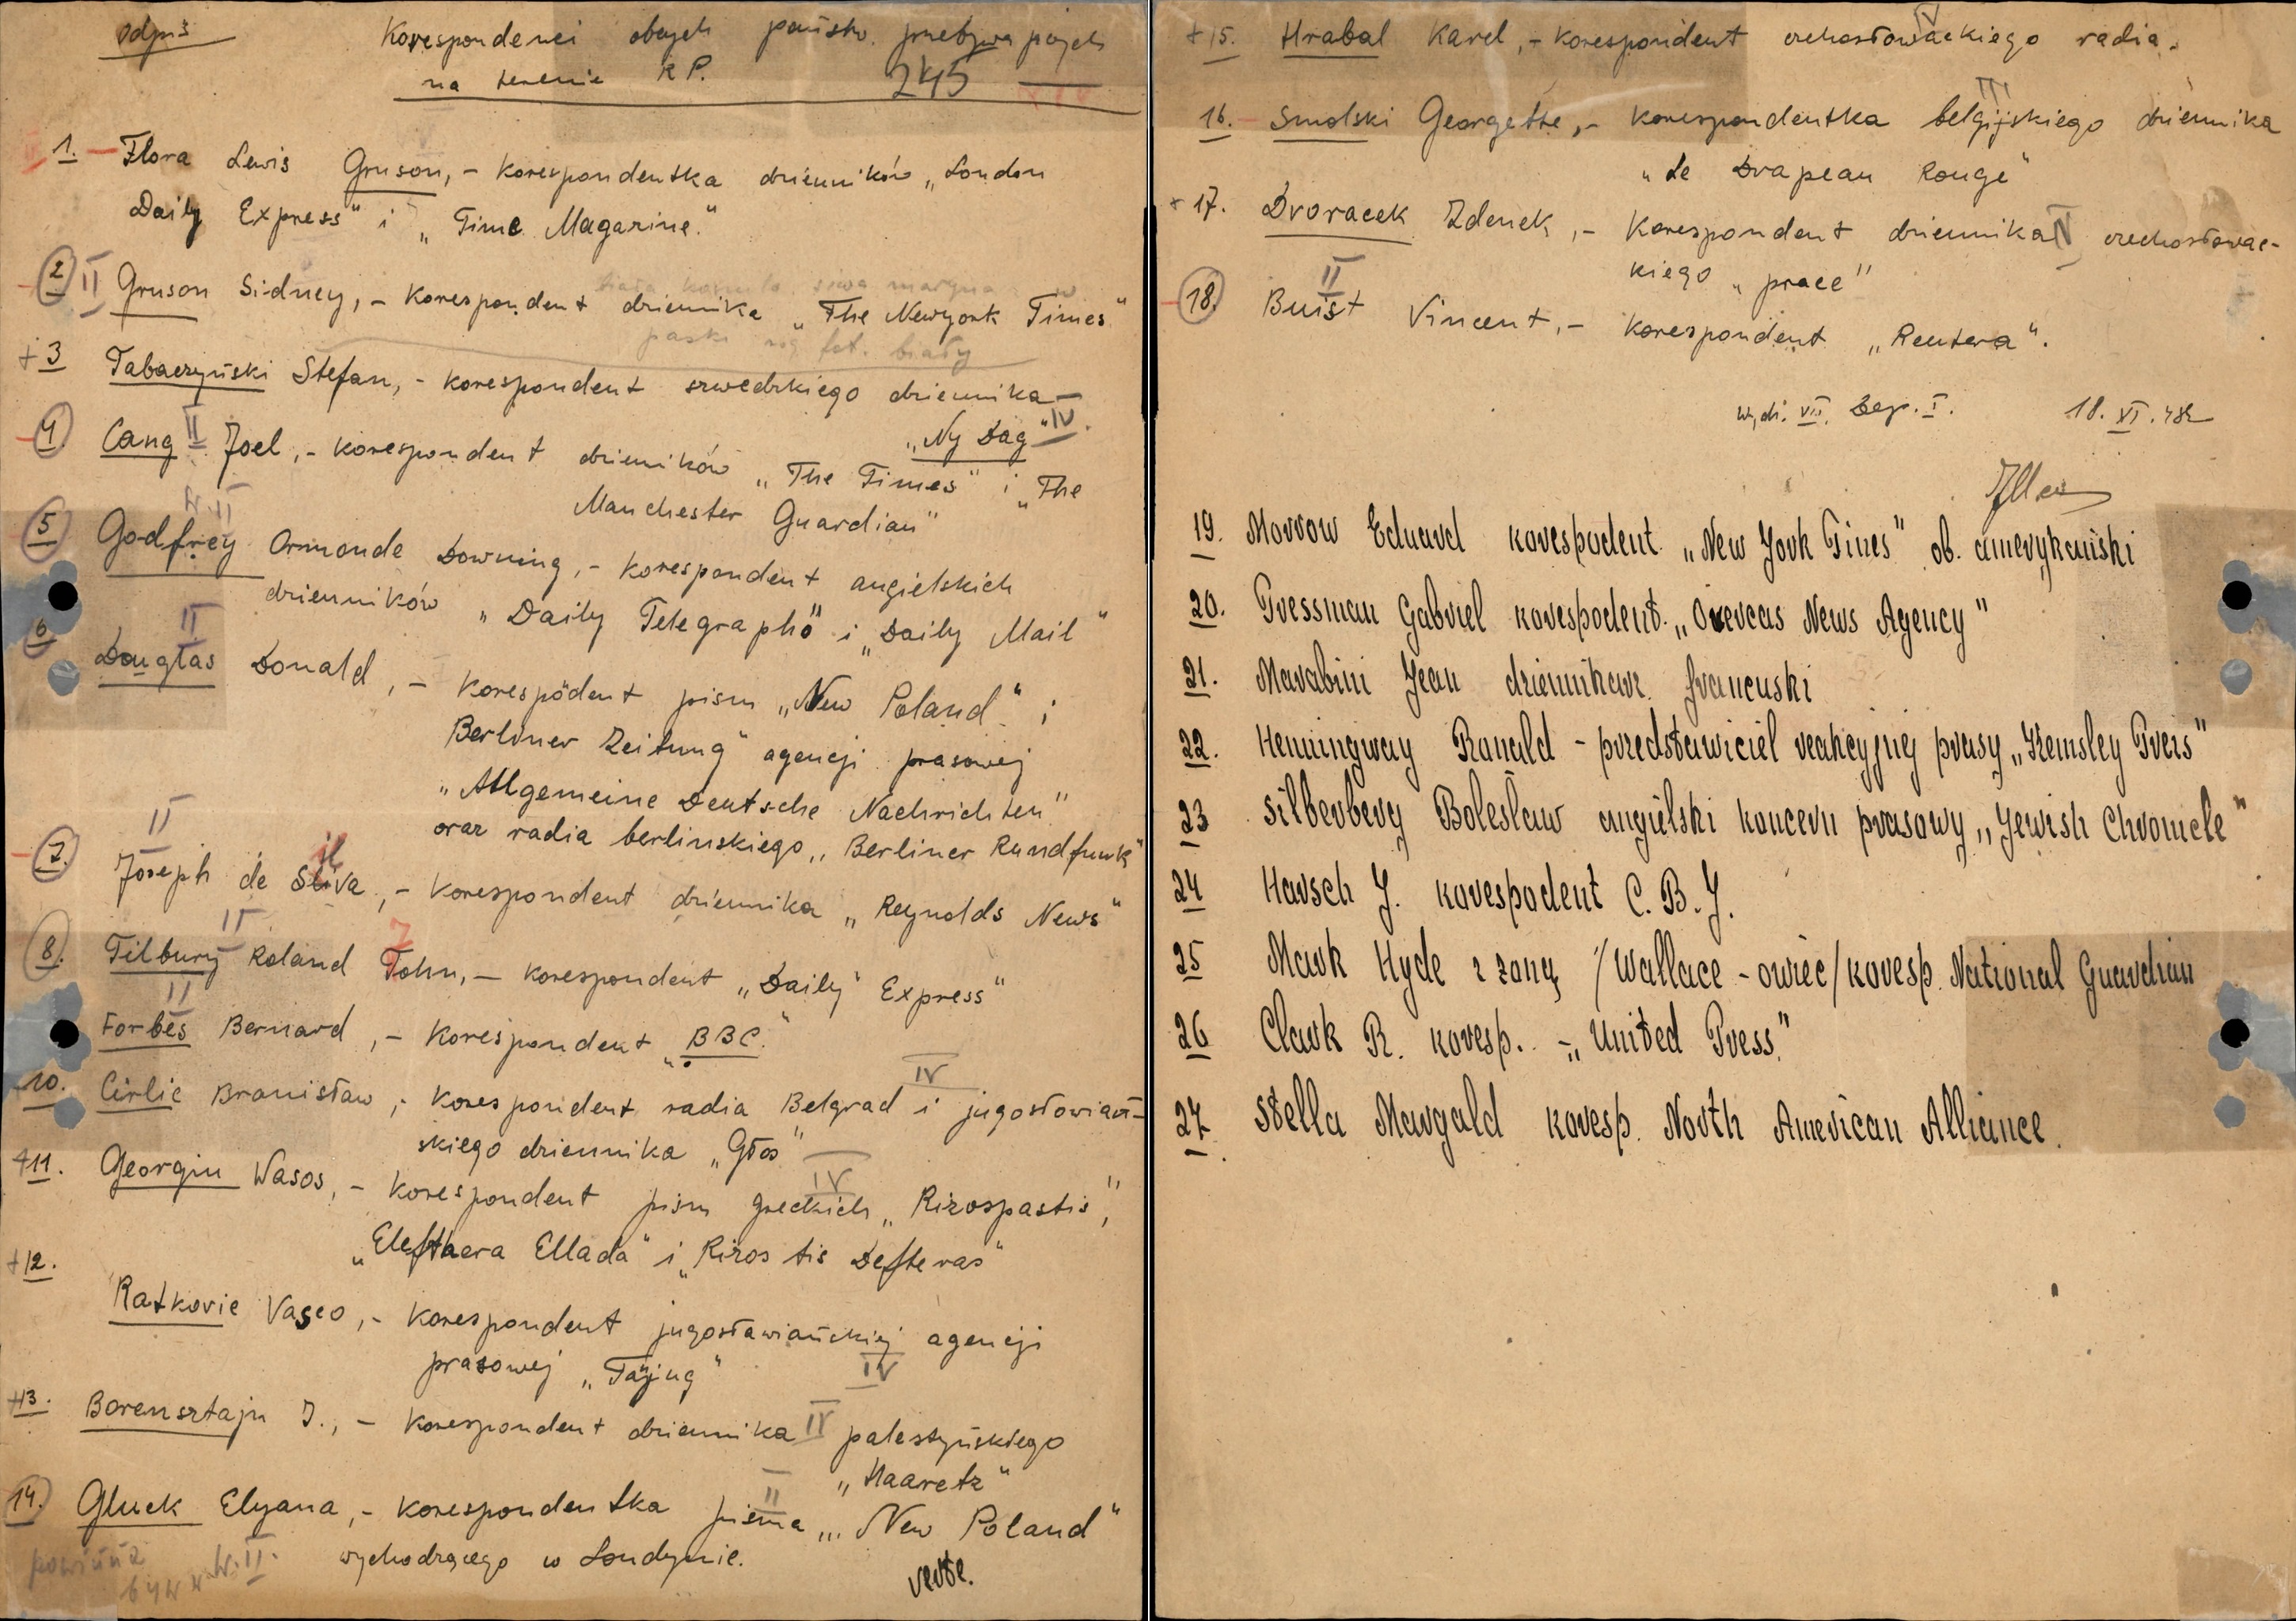 Odpis
Korespondenci obcych państw. przebywających
na terenie R P. 245
1. Flora Lewis Gruson, - korespondentka dzienników „London
Daily Express" i „Time Magazine."
2 II Gruson Sidney, - korespondent dziennika „The Newyork Times"
+3 Tabaczyński Stefan, - korespondent szwedzkiego dziennika
„Ny Dag" IV.
4. Cang II Joel, - korespondent dzienników „The Times" i „The
Manchester Guardian"
II
5 Godfrey Ormonde Downing, - korespondent angielskich
dzienników „Daily Telegraph" i „Daily Mail"
II
6 Douglas Donald, - korespodent pism „New Poland" i
Berliner Zeitung" agencji prasowej
„Allgemeine Deutsche Nachrichten"
oraz radia berlinskiego „Berliner Rundfunk"
II
7. Joseph de Silva, - korespondent dziennika „Reynolds News"
II
8. Tilbury Roland John, - korespondent „Daily Express"
II
Forbes Bernard, - korespondent „BBC."
IV
10. Cirlic Branisław, - korespondent radia Belgrad i jugosłowiań-
skiego dziennika „Głos"
IV
+11. Georgiu Wasos, - korespondent pism greckich „Rizospastis",
„Eleftaera Ellada" i „Rizos tis Defteras"
+12.
Ratkovic Vasco, - korespondent jugosławiańskiej agencji
prasowej „Tajug" IV
+13. Borensztajn J., - korespondent dziennika IV palestyńskiego
„Haaretz"
II
14. Gluck Elyana, - korespondentka pisma „New Poland"
wychodzącego w Londynie.
powinna
być w W. II.
verte.
IV
+15. Hrabal Karel, - korespondent czechosłowackiego radia.
III
16. Smolski Georgette, - korespondentka belgijskiego dziennika
„Le Drapeau Rouge"
+17. Dvoracek Zdenek, - korespondent dziennika IV czechosłowac-
kiego „prace"
II
18. Buist Vincent, - korespondent „Reutera".
Wydz. VII. Dep. I. 18. XI. 48r
19. Morrow Eduard korespodent „New York Times" ob. amerykański
20. Pressman Gabriel korespodent. „Overcas News Agency"
21. Marabini Jean dziennikarz francuski
22. Hemingway Ronald - przedstawiciel reakcyjnej prasy „Kemsley Preis"
23 Silberberg Bolesław angielski koncern prasowy „Jewish Chronicle"
24 Harsch J. korespodent C. B. J.
25 Mark Hyde z żoną /Wallace - owiec/ koresp. National Guardian
26 Clark R. koresp. - „United Press."
27 Stella Margald koresp. North American Alliance.